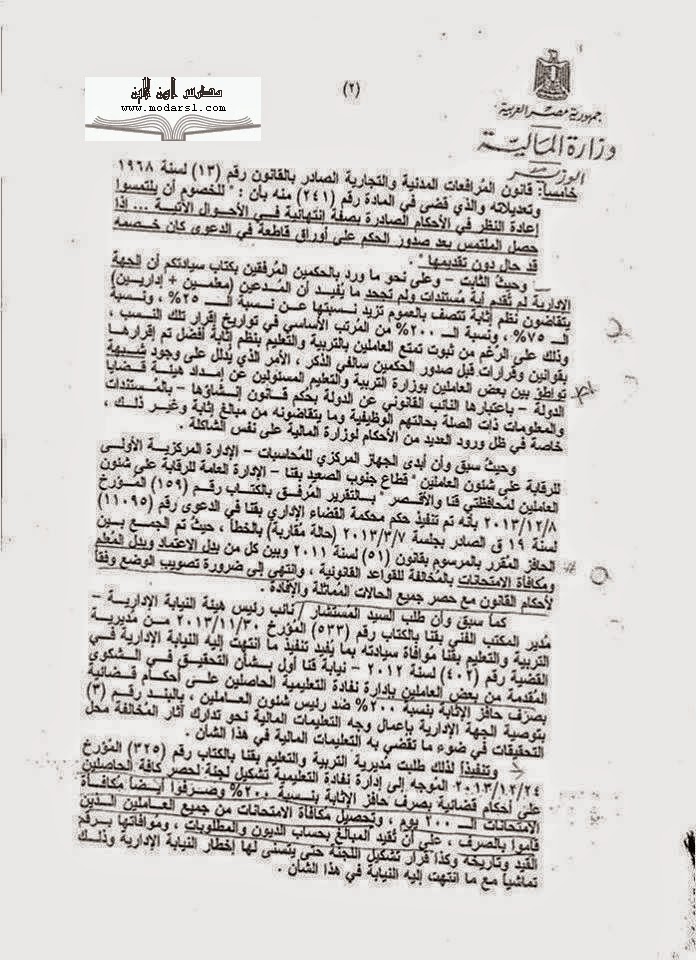 (٢)
مدرس اون لاين
www.modars1.com
جمهورية مصر العربية
وزارة المالية
الوزير
خامساً: قانون المُرافعات المدنية والتجارية الصادر بالقانون رقم (١٣) لسنة ١٩٦٨
وتعديلاته والذي قضى في المادة رقم (٢٤١) منه بأن : " للخصوم أن يلتمسوا
إعادة النظر في الأحكام الصادرة بصفة إنتهائية في الأحوال الآتية ... إذا
حصل الملتمس بعد صدور الحكم على أوراق قاطعة في الدعوى كان خصمه
قد حال دون تقديمها " .
وحيث الثابت – وعلى نحو ما ورد بالحكمين المُرفقين بكتاب سيادتكم أن الجهة
الإدارية لم تُقدم أية مستندات ولم تجحد ما يُفيد أن المُدعين (معلمين + إداريين)
يتقاضون نظم إثابة تتصف بالعموم تزيد نسبتها عن نسبة الـ ٢٥% ، ونسبة
الـ ٧٥% ، ونسبة الـ ٢٠٠% من المُرتب الأساسي في تواريخ إقرار تلك النسب ،
وذلك على الرُغم من ثبوت تمتع العاملين بالتربية والتعليم بنظم إثابة أفضل تم إقرارها
بقوانين وقرارات قبل صدور الحكمين سالفي الذكر ، الأمر الذي يُدلل على وجود شبهة
تواطؤ بين بعض العاملين بوزارة التربية والتعليم المسئولين عن إمداد هيئة قضايا
الدولة – باعتبارها النائب القانوني عن الدولة بحكم قانون إنشاؤها – بالمُستندات
والمعلومات ذات الصلة بحالتهم الوظيفية وما يتقاضونه من مبالغ إثابة وغير ذلك ،
خاصة في ظل ورود العديد من الأحكام لوزارة المالية على نفس الشاكلة .
وحيثُ سبق وأن أبدى الجهاز المركزي للمُحاسبات – الإدارة المركزية الأولى
للرقابة على شئون العاملين " قطاع جنوب الصعيد بقنا – الإدارة العامة للرقابة على شئون
العاملين لمُحافظتي قنا والأقصر " بالتقرير المُرفق بالكتاب رقم (١٥٩) المُؤرخ
٢٠١٣/١٢/٨ بأنه تم تنفيذ حكم محكمة القضاء الإداري بقنا في الدعوى رقم (١١٠٩٥)
لسنة ١٩ ق الصادر بجلسة ٢٠١٣/٣/٧ (حالة مقاربة) بالخطأ ، حيثُ تم الجمع بين
الحافز المُقرر بالمرسوم بقانون (٥١) لسنة ٢٠١١ وبين كل من بدل الاعتماد وبدل المُعلم
ومكافأة الامتحانات بالمُخالفة للقواعد القانونية ، وانتهى إلى ضرورة تصويب الوضع وفقاً
لأحكام القانون مع حصر جميع الحالات المُماثلة والإفادة .
كما سبق وأن طلب السيد المستشار / نائب رئيس هيئة النيابة الإدارية –
مُدير المكتب الفني بقنا بالكتاب رقم (٥٣٣) المُؤرخ ٢٠١٣/١١/٣٠ من مديرية
التربية والتعليم بقنا مُوافاة سيادته بما يُفيد تنفيذ ما انتهت إليه النيابة الإدارية في
القضية رقم (٤٠٢) لسنة ٢٠١٢ – نيابة قنا أول بشأن التحقيق في الشكوى
المُقدمة من بعض العاملين بإدارة نقادة التعليمية الحاصلين على أحكام قضائية
بصرف حافز الإثابة بنسبة ٢٠٠% ضد رئيس شئون العاملين ، بالبند رقم (٣)
بتوصية الجهة الإدارية بإعمال وجه التعليمات المالية نحو تدارك آثار المُخالفة محل
التحقيقات في ضوء ما تقضي به التعليمات المالية في هذا الشأن .
وتنفيذاً لذلك طلبت مديرية التربية والتعليم بقنا بالكتاب رقم (٣٢٥) المُؤرخ
٢٠١٣/١٢/٢٤ المُوجه إلى إدارة نقادة التعليمية تشكيل لجنة لحصر كافة الحاصلين
على أحكام قضائية بصرف حافز الإثابة بنسبة ٢٠٠% وصرفوا أيضاً مُكافأة
الامتحانات الـ ٢٠٠ يوم ، وتحصيل مكافأة الامتحانات من جميع العاملين الذين
قاموا بالصرف ، على أن تُقيد المبالغ بحساب الديون والمطلوبات ، ومُوافاتها برقم
القيد وتاريخه وكذا قرار تشكيل اللجنة حتى يتسنى لها إخطار النيابة الإدارية وذلك
تماشياً مع ما انتهت إليه النيابة في هذا الشأن .